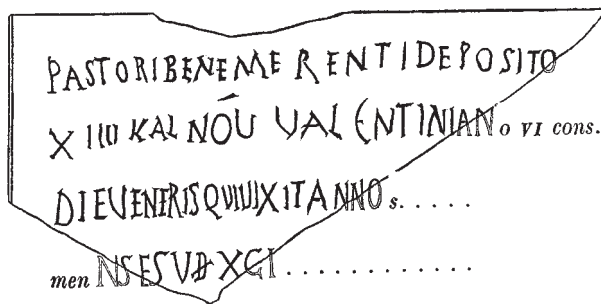 PASTORIBENEMERENTIDEPOSITO
X IIII KAL NÓU UALENTINIANo VI cons.
DIEUENERISQUIUIXITANNOs. . . . . .
men NSESVĐXGI . . . . . . . . . . . . .